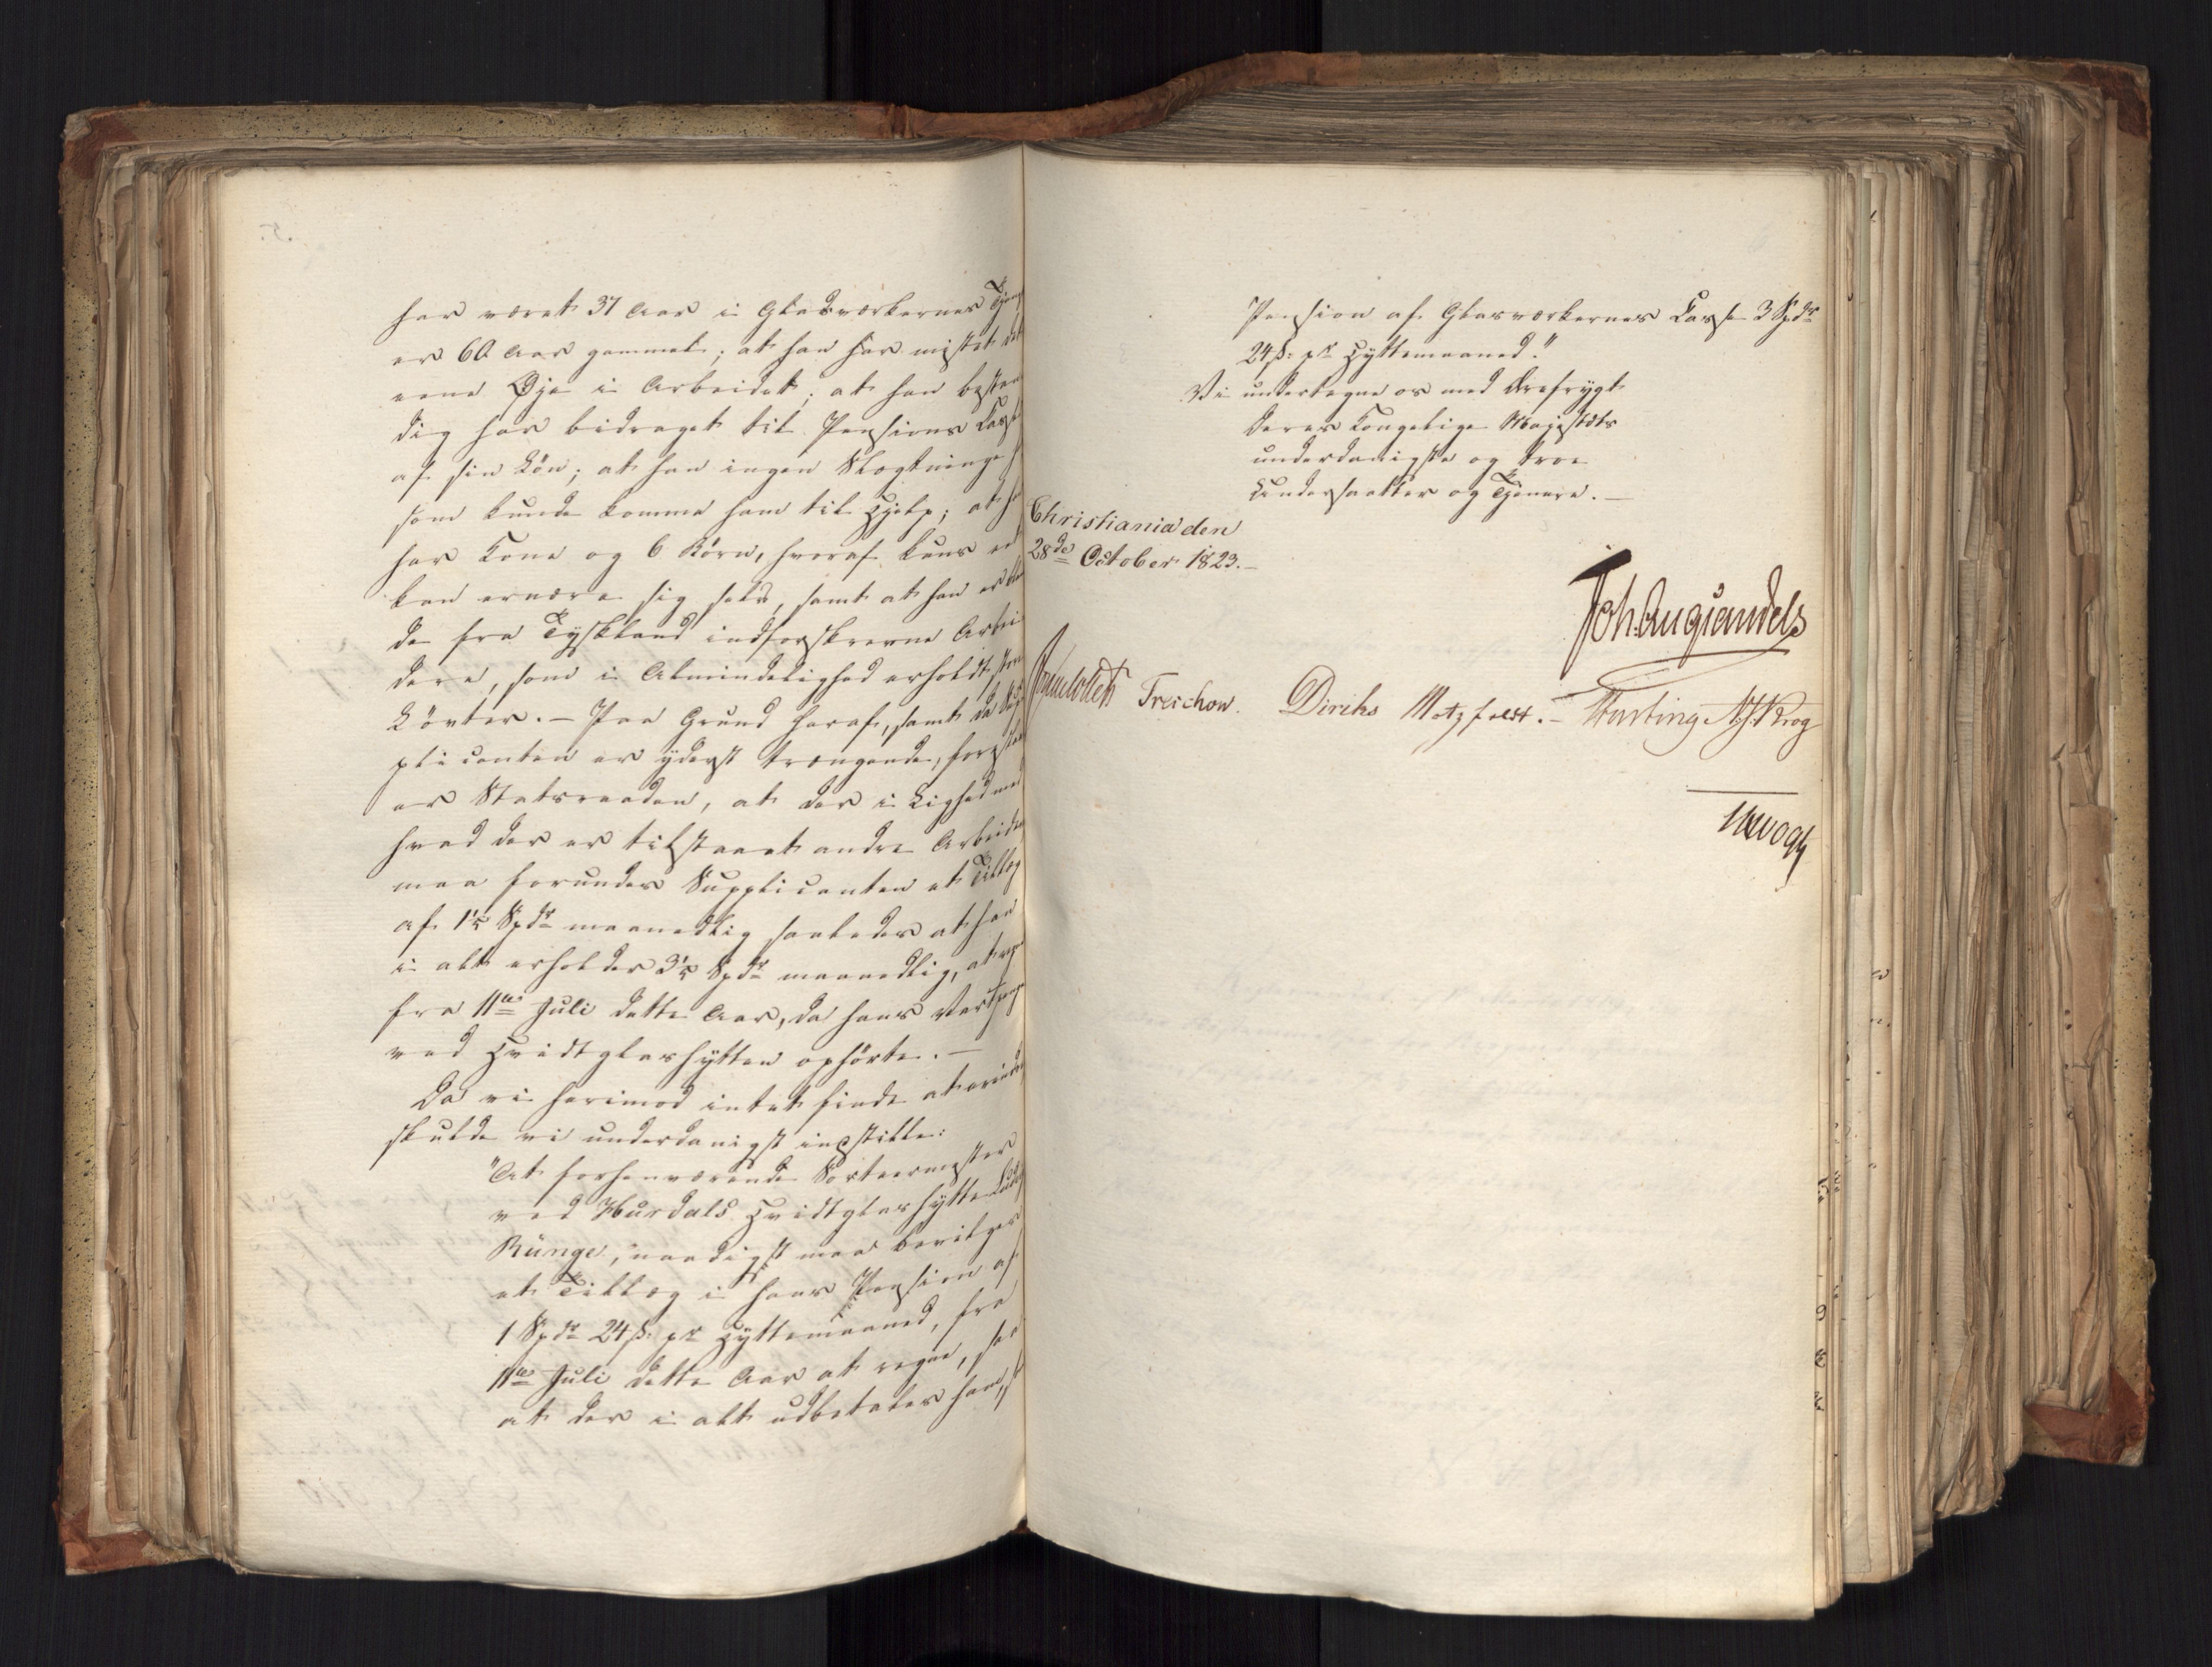 har været 37 Aar i Glasværkernes Tjene
er 60 Aar gammel; at han har mistet det
eene Øje i Arbeidet; at han bestan
dig har bidraget til Pensions Casse
af sin Løn; at han ingen Slægtninge
som kunde komme ham til Hjelp; at h
har Kone og 6 Børn, hvoraf kuns en
kan ernære sig selv, samt at han er bl
de fra Tyskland indforskrevne Arbei
dere, som i Almindelighed erholdt store
Løvter. – Paa Grund heraf, samt da Sup
plicanten er yderst trængende, forestaa
er Statsraaden, at der i Lighed med
hvad der er tilstaaet andre Arbeide
maa forundes Supplicanten et Tillæg
af 1 1/5 Spdr maanedlig saaledes at han
i alt erholder 3 1/5 Spdr maanedlig, at regn
fra 11te Juli dette Aar, da hans Vartpenge
ved Hvidtglashytten ophørte. –
Da vi herimod intet finde at erindre
skulde vi underdanigst indstille:
"At forhenværende Sorteermester
ved Hurdals Hvidtglashytte Ludv
Rünge, naadigst maa bevilges
et Tillæg i hans Pension af
1 Spdr 24 ß. pr Hyttemaaned, fra
11te Juli dette Aar at regne, saa
at der i alt udbetales ham, s
Pension af Glasværkernes Casse 3 Spdr
24 ß: pr Hyttemaaned."
Vi undertegne os med Ærefrygt
Deres Kongelige Majestæts
underdanigste og troe
Undersaatter og Tjenere. –
Christiania den
28de October 1823. –
Joh. Aug. Sandels
Sommerhielm Treschow. Diriks Motzfeldt. – Fasting N J. Krog
Vogt